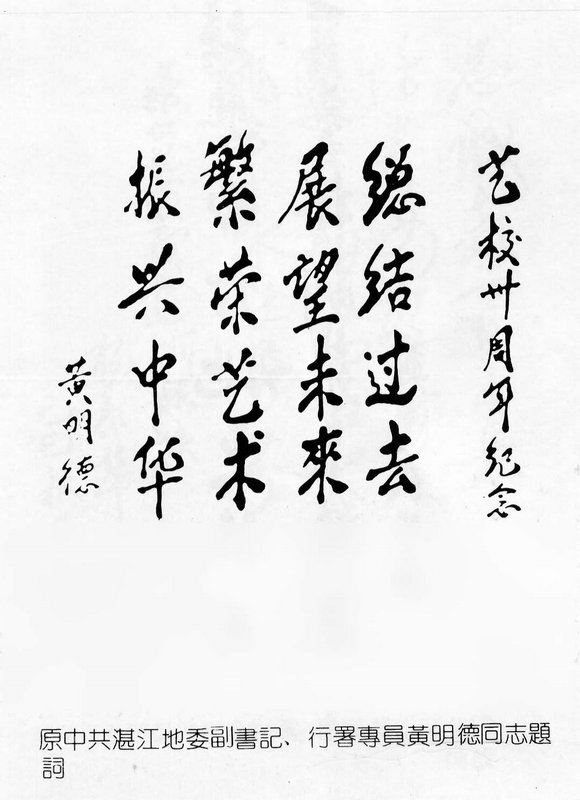 艺校卅周年纪念
總结过去
展望未來
繁荣艺术
振兴中华
黄明德
原中共湛江地委副書記、行署專員黃明德同志題
詞